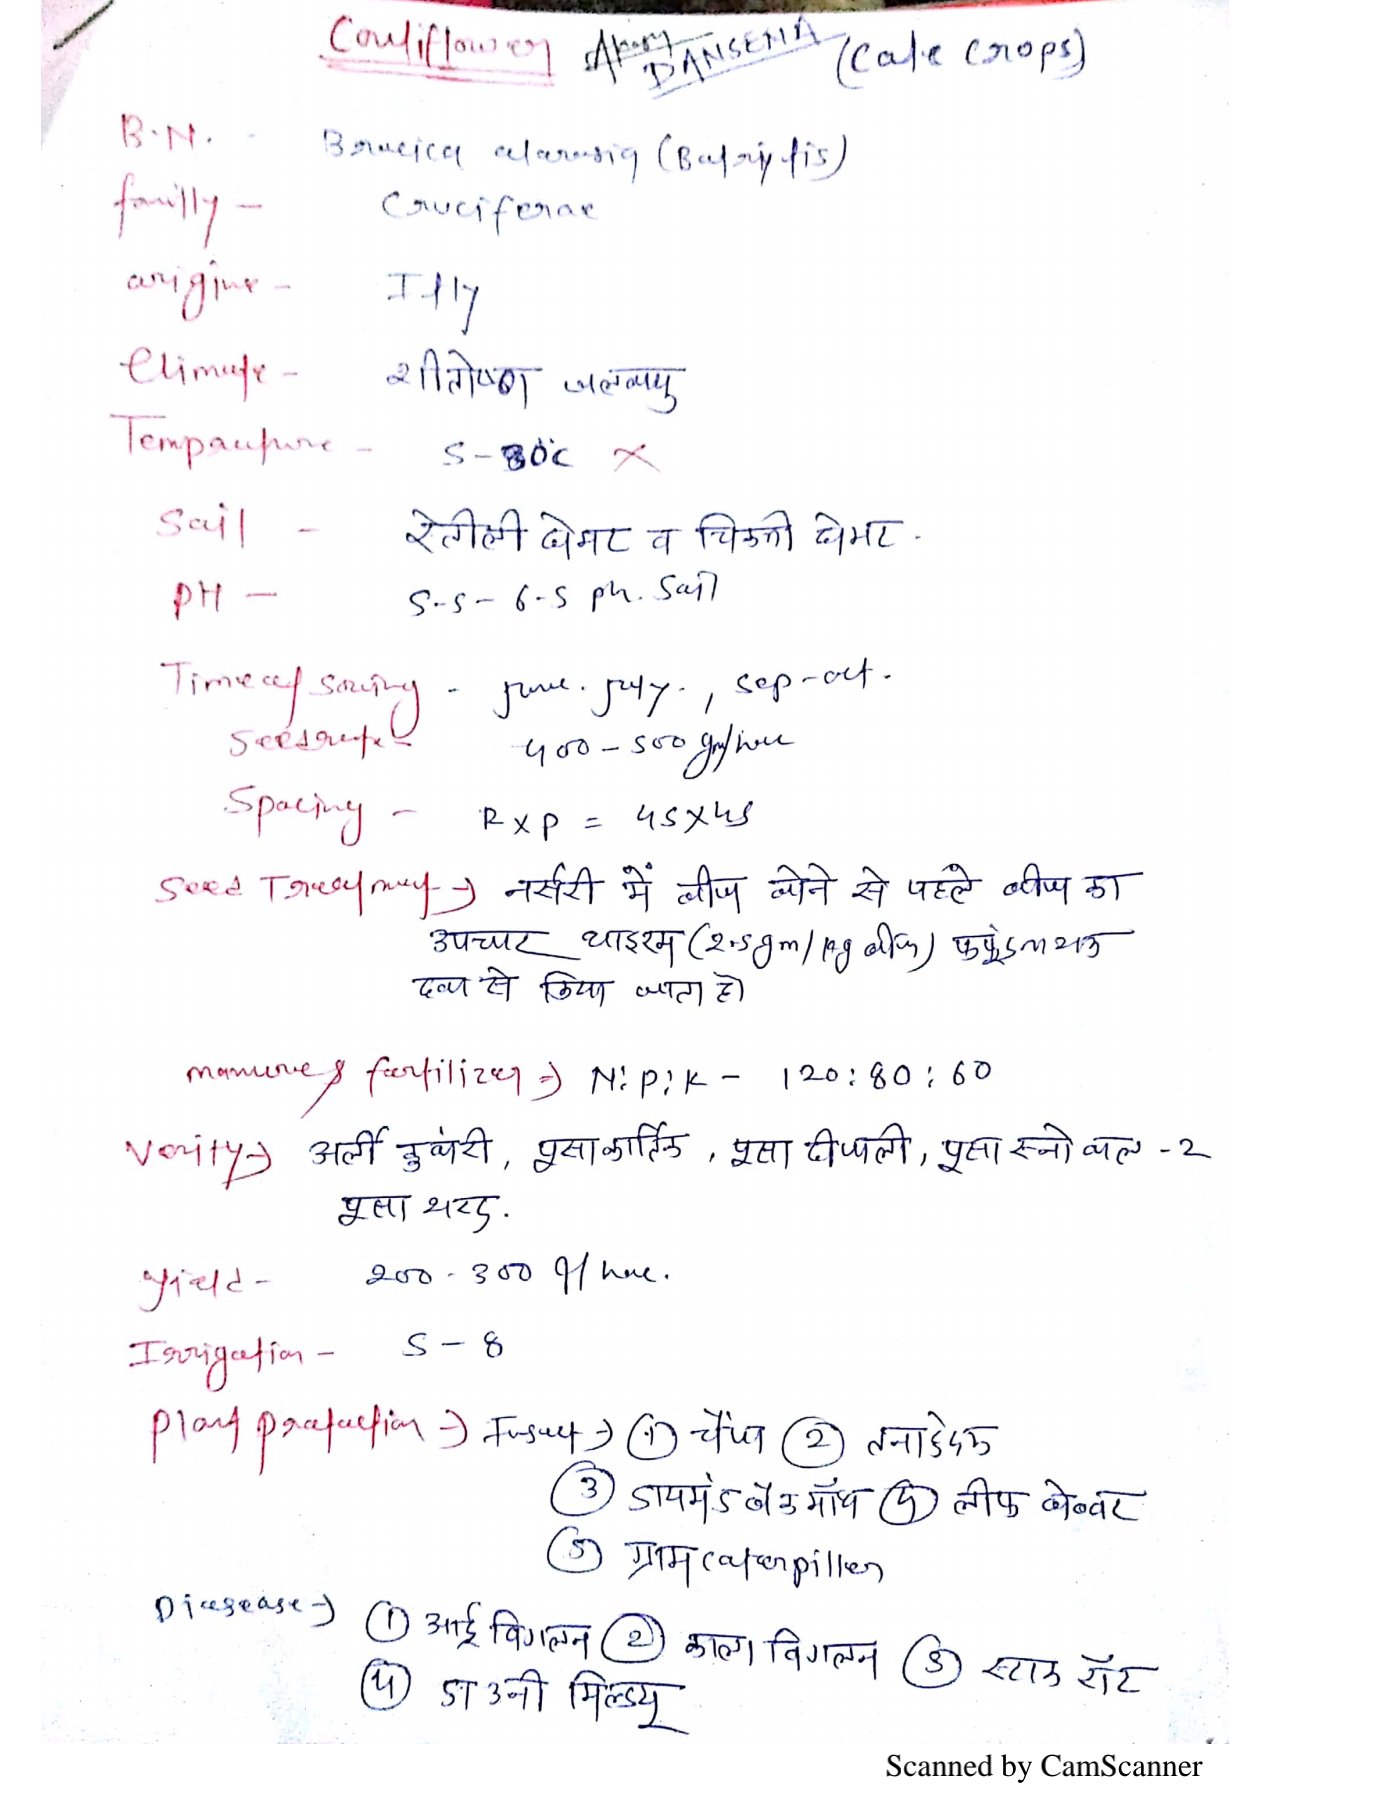 Couliflower DANSENA (Cale crops)
B.N. - Braeica alarasia (Batriytis)
failly - Cruciferae
arigine - Itly
Climate - शीतोष्ण जलवायु
Tempauture - 5-30°C ×
Sail - रेतीली दोमट व चिकनी दोमट.
PH - 5.5 - 6.5 ph. Sail
Time of Sowing - june. july., sep-oct.
Seedrate - 400-500 gm/hac
Spacing - R×P = 45×45
Seed Treatment → नर्सरी में बीज बोने से पहले बीज का
उपचार थाइरम (2.5gm/kg बीज) फफूंदनाशक
दवा से किया जाता है।
manure & fartilizer → N:P:K - 120:80:60
Verity → अर्ली कुवांरी, पूसा कार्तिक, पूसा दीपाली, पूसा स्नो बाल -2
पूसा शरद.
Yield - 200-300 q/hac.
Irrigation - 5-8
Plant protaction → Insect → ① चेंपा ② तनाछेदक
③ डायमंड बैक मॉथ ④ लीफ वेबर
⑤ ग्राम caterpiller
Diesease → ① आर्द्र विगलन ② काला विगलन ③ स्टाक रॉट
④ डाउनी मिल्ड्यू
Scanned by CamScanner